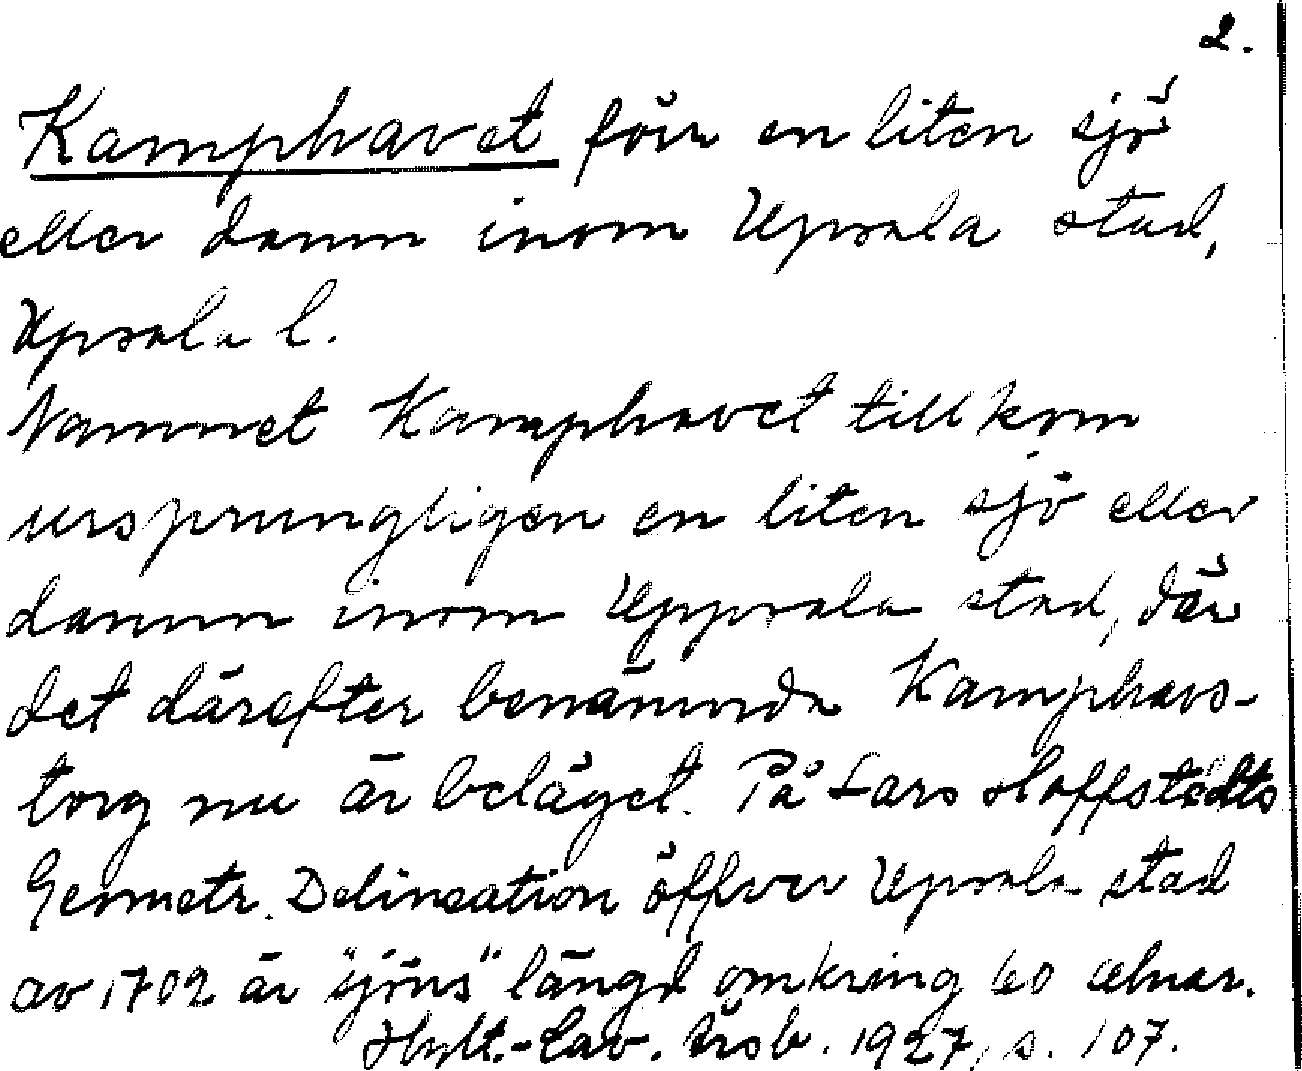 2.
Kamphavet förr en liten sjö
eller damm inom Upsala stad,
Upsala l.
Namnet Kamphavet tillkom
ursprungligen en liten sjö eller
damm inom Uppsala stad, där
det därefter benämnda Kamphavs-
torg nu är beläget. På Lars Hoffstedts
Geometr. Delineation öffver Upsala stad
av 1702 är "sjöns" längd omkring 60 alnar.
Hylt.-Cav. Årsb. 1927, s. 107.